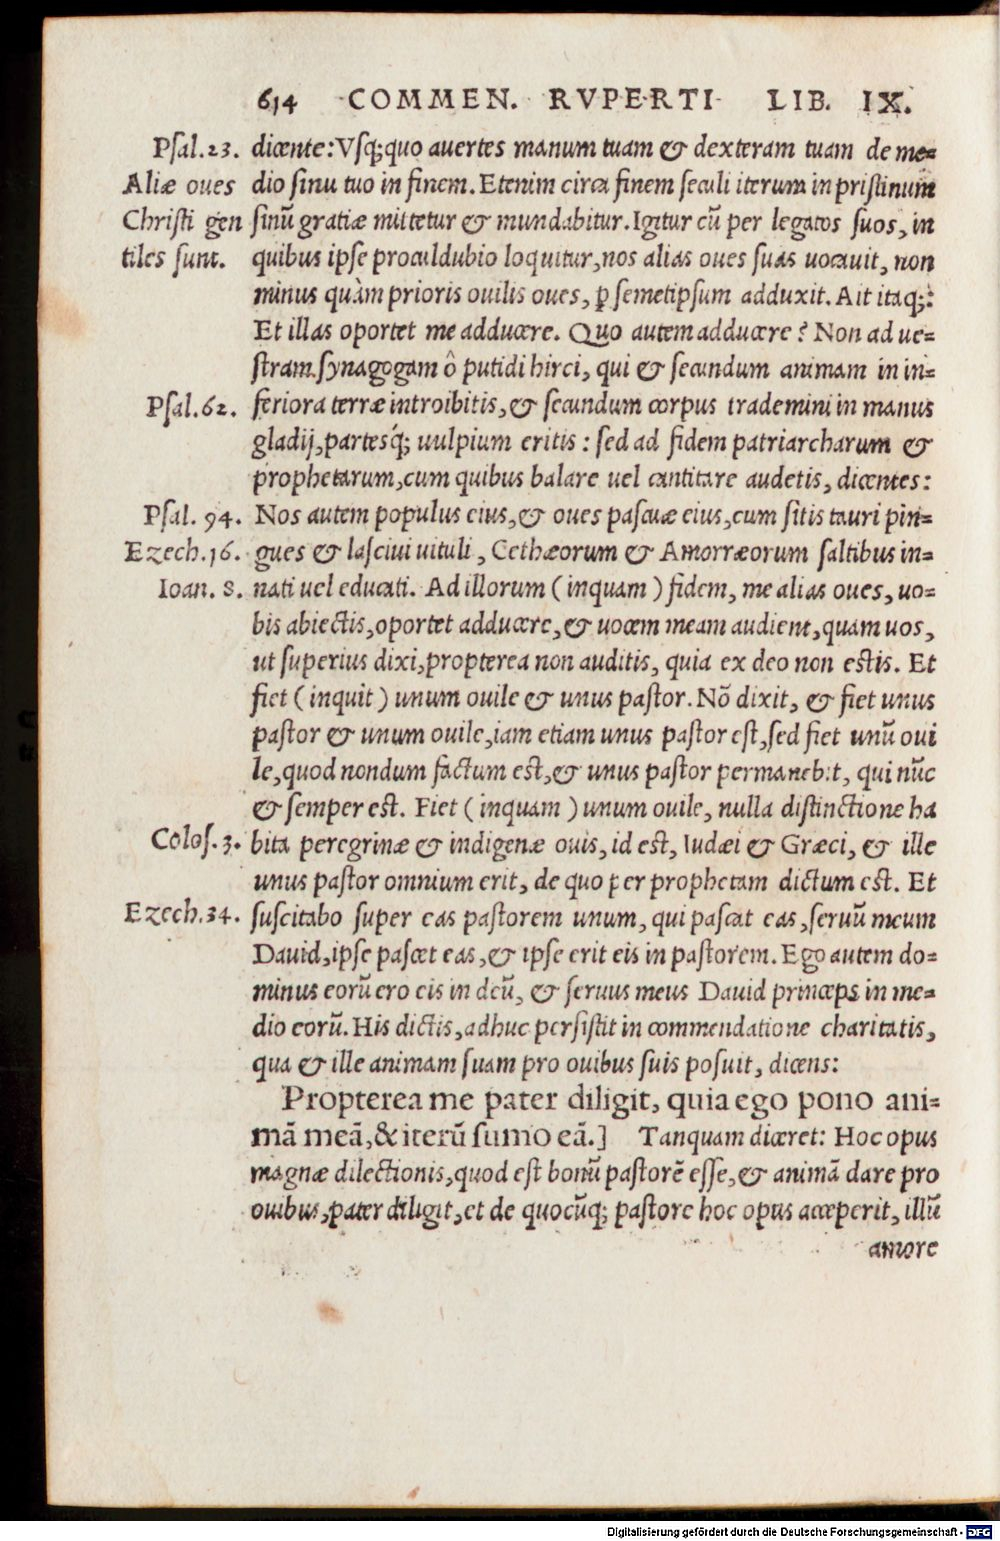 614 COMMEN. RVPERTI LIB. IX.
Psal.23. dicente:Vsq;quo auertes manum tuam & dexteram tuam de me=
Aliæ oues dio sinu tuo in finem. Etenim circa finem seculi iterum in pristinum
Christi gen sinũ gratiæ mittetur & mundabitur. Igitur cũ per legatos suos, in
tiles sunt. quibus ipse proculdubio loquitur, nos alias oues suas uocauit, non
minus quàm prioris ouilis oues, ꝑ semetipsum adduxit. Ait itaq;:
Et illas oportet me adducere. Quo autem adducere? Non ad ue=
stram synagogam ô putidi hirci, qui & secundum animam in in=
Psal.62. feriora terræ introibitis, & secundum corpus trademini in manus
gladij, partesq́; uulpium eritis: sed ad fidem patriarcharum &
prophetarum, cum quibus balare uel cantitare audetis, dicentes:
Psal. 94. Nos autem populus eius, & oues pascuæ eius, cum sitis tauri pin=
Ezech.16. gues & lasciui uituli, Cethæorum & Amorræorum saltibus in=
Ioan. 8. nati uel educati. Ad illorum (inquam) fidem, me alias oues, uo=
bis abiectis, oportet adducere, & uocem meam audient, quam uos,
ut superius dixi, propterea non auditis, quia ex deo non estis. Et
fiet (inquit) unum ouile & unus pastor. Nõ dixit, & fiet unus
pastor & unum ouile, iam etiam unus pastor est, sed fiet unũ oui
le, quod nondum factum est, & unus pastor permanebit, qui nũc
& semper est. Fiet (inquam) unum ouile, nulla distinctione ha
Colos.3. bita peregrinæ & indigenæ ouis, id est, Iudæi & Græci, & ille
unus pastor omnium erit, de quo per prophetam dictum est. Et
Ezech.34. suscitabo super eas pastorem unum, qui pascat eas, seruũ meum
Dauid, ipse pascet eas, & ipse erit eis in pastorem. Ego autem do=
minus eorũ ero eis in deũ, & seruus meus Dauid princeps in me=
dio eorũ. His dictis, adhuc persistit in commendatione charitatis,
qua & ille animam suam pro ouibus suis posuit, dicens:
Propterea me pater diligit, quia ego pono ani=
mã meã, & iterũ sumo eã.] Tanquam diceret: Hoc opus
magnæ dilectionis, quod est bonũ pastorẽ esse, & animã dare pro
ouibus, pater diligit, et de quocũq; pastore hoc opus acceperit, illũ
amore
Digitalisierung gefördert durch die Deutsche Forschungsgemeinschaft - DFG